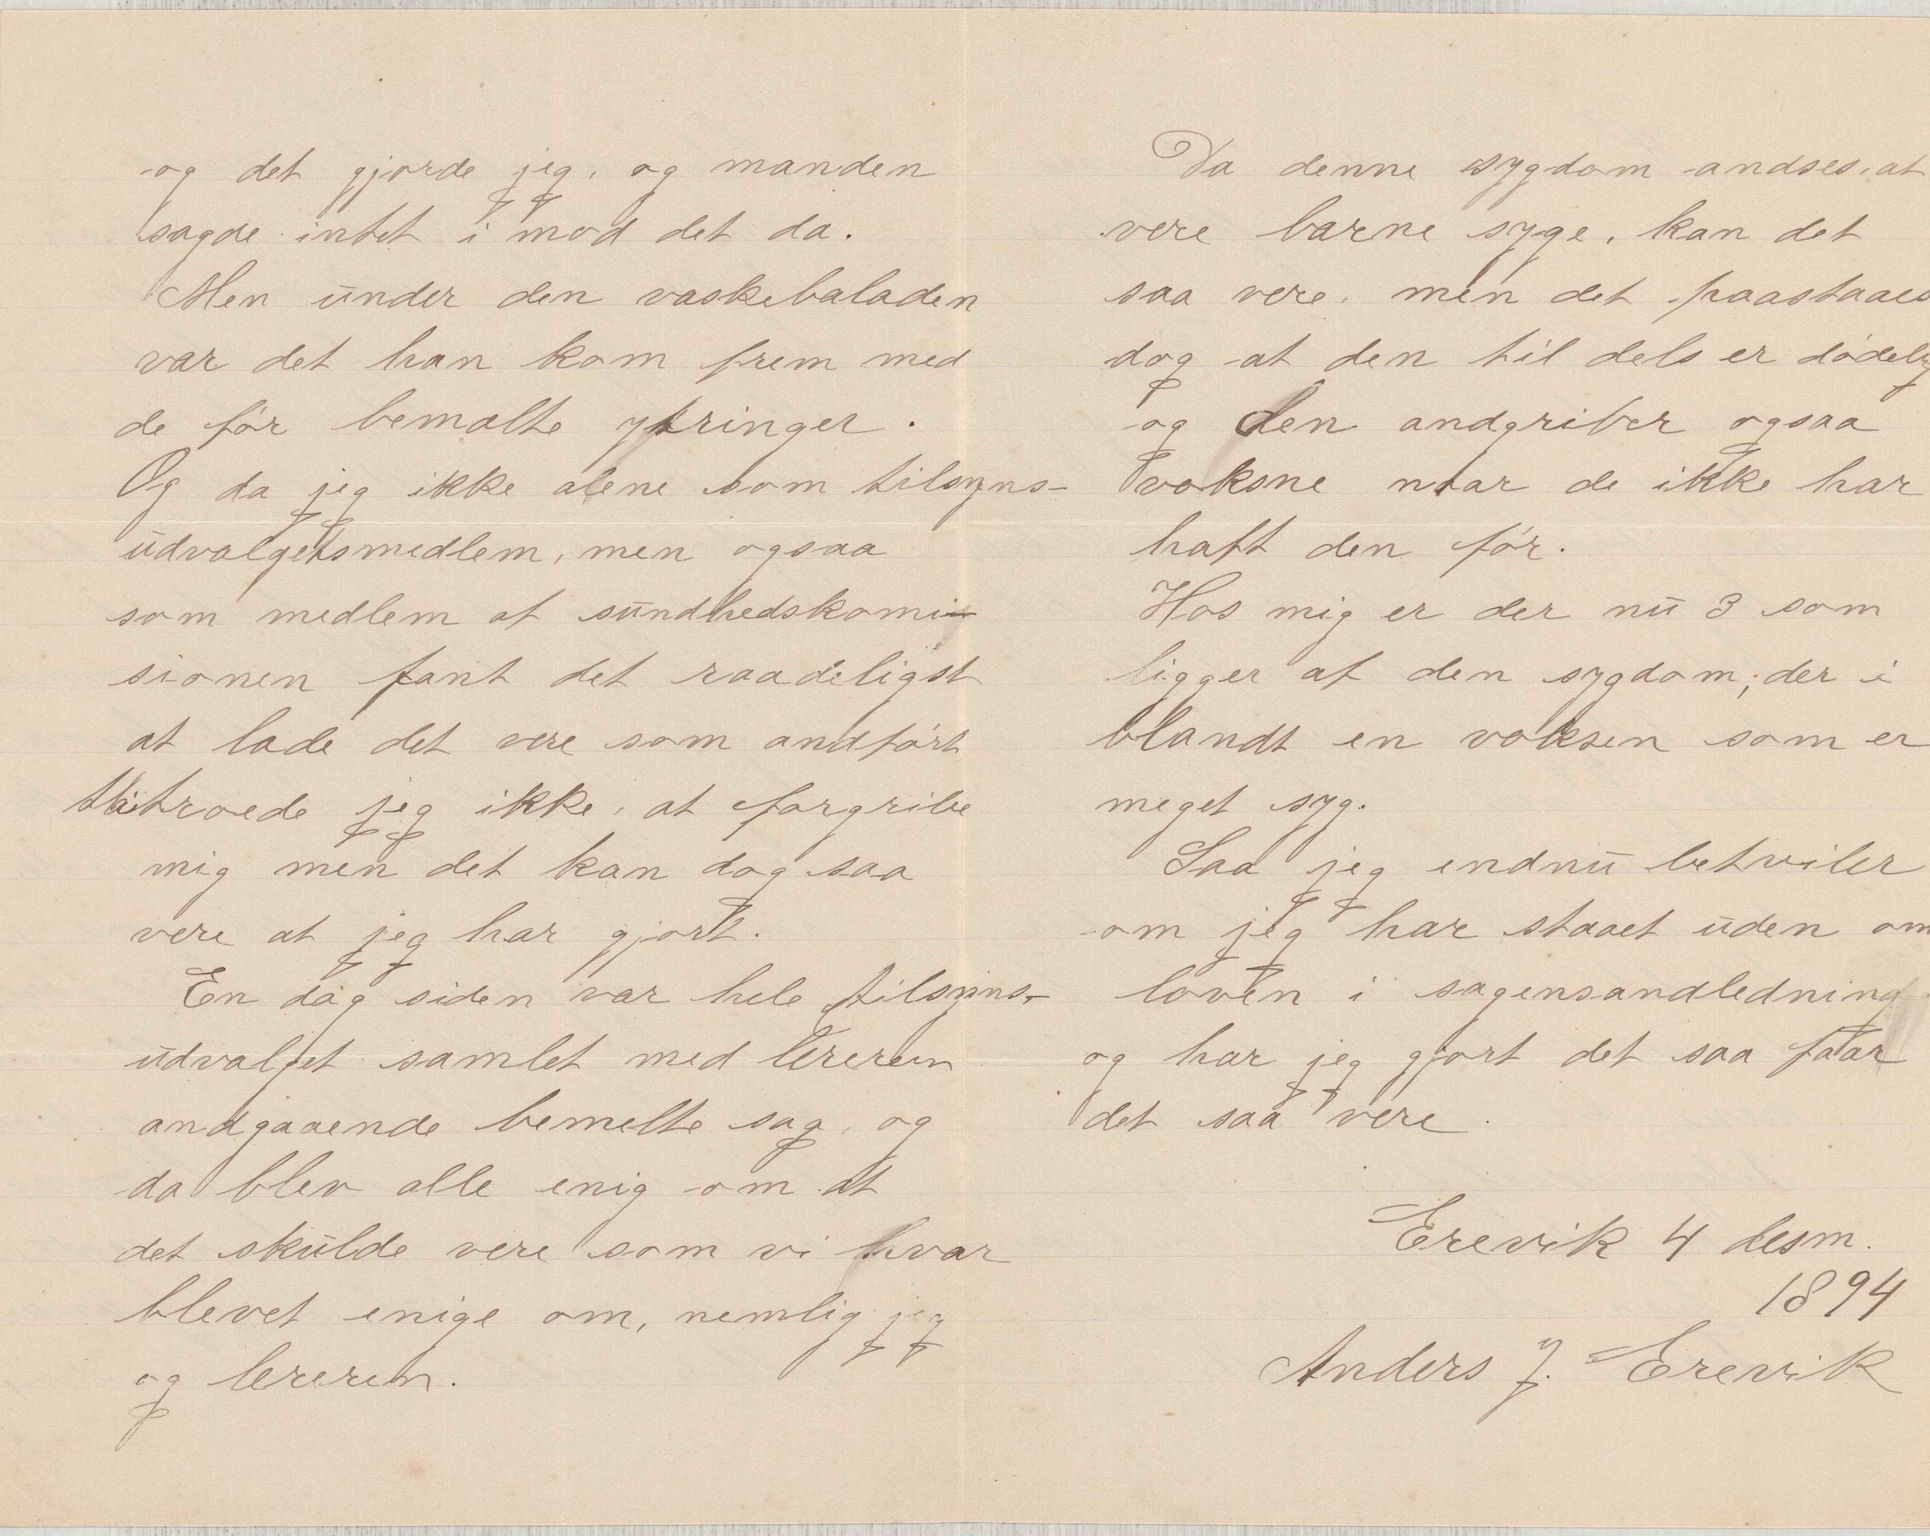 og det gjorde jeg, og manden
sagde intet i mod det da.
Men under den vaskebaladen
var det han kom frem med
de før bemælte ytringer.
Og da jeg ikke alene som tilsyns-
udvalgetsmedlem, men ogsaa
som medlem af sundhedskomi-
sionen fant det raadeligst
at lade det vere som andført
troede jeg ikke, at forgribe
mig men det kan dog saa
vere at jeg har gjort.
En dag siden var hele tilsyns-
udvalget samlet med lereren
andgaaende bemelte sag, og
da blev alle enig om at
det skulde vere som vi hvar
blevet enige om, nemlig jeg
og lereren.
Da denne sygdom andses, at
vere barne syge, kan det
saa vere, men det paastaaes
dog at den til dels er dødelig
og den andgriber ogsaa
voksne naar de ikke har
haft den før.
Hos mig er der nu 3 som
ligger af den sygdom, der i
blandt en voksen som er
meget syg.
Saa jeg endnu betviler
om jeg har staaet uden om
loven i sagensandledning
og har jeg gjort det saa faar
det saa vere.
Erevik 4 desm.
1894
Anders J. Erevik